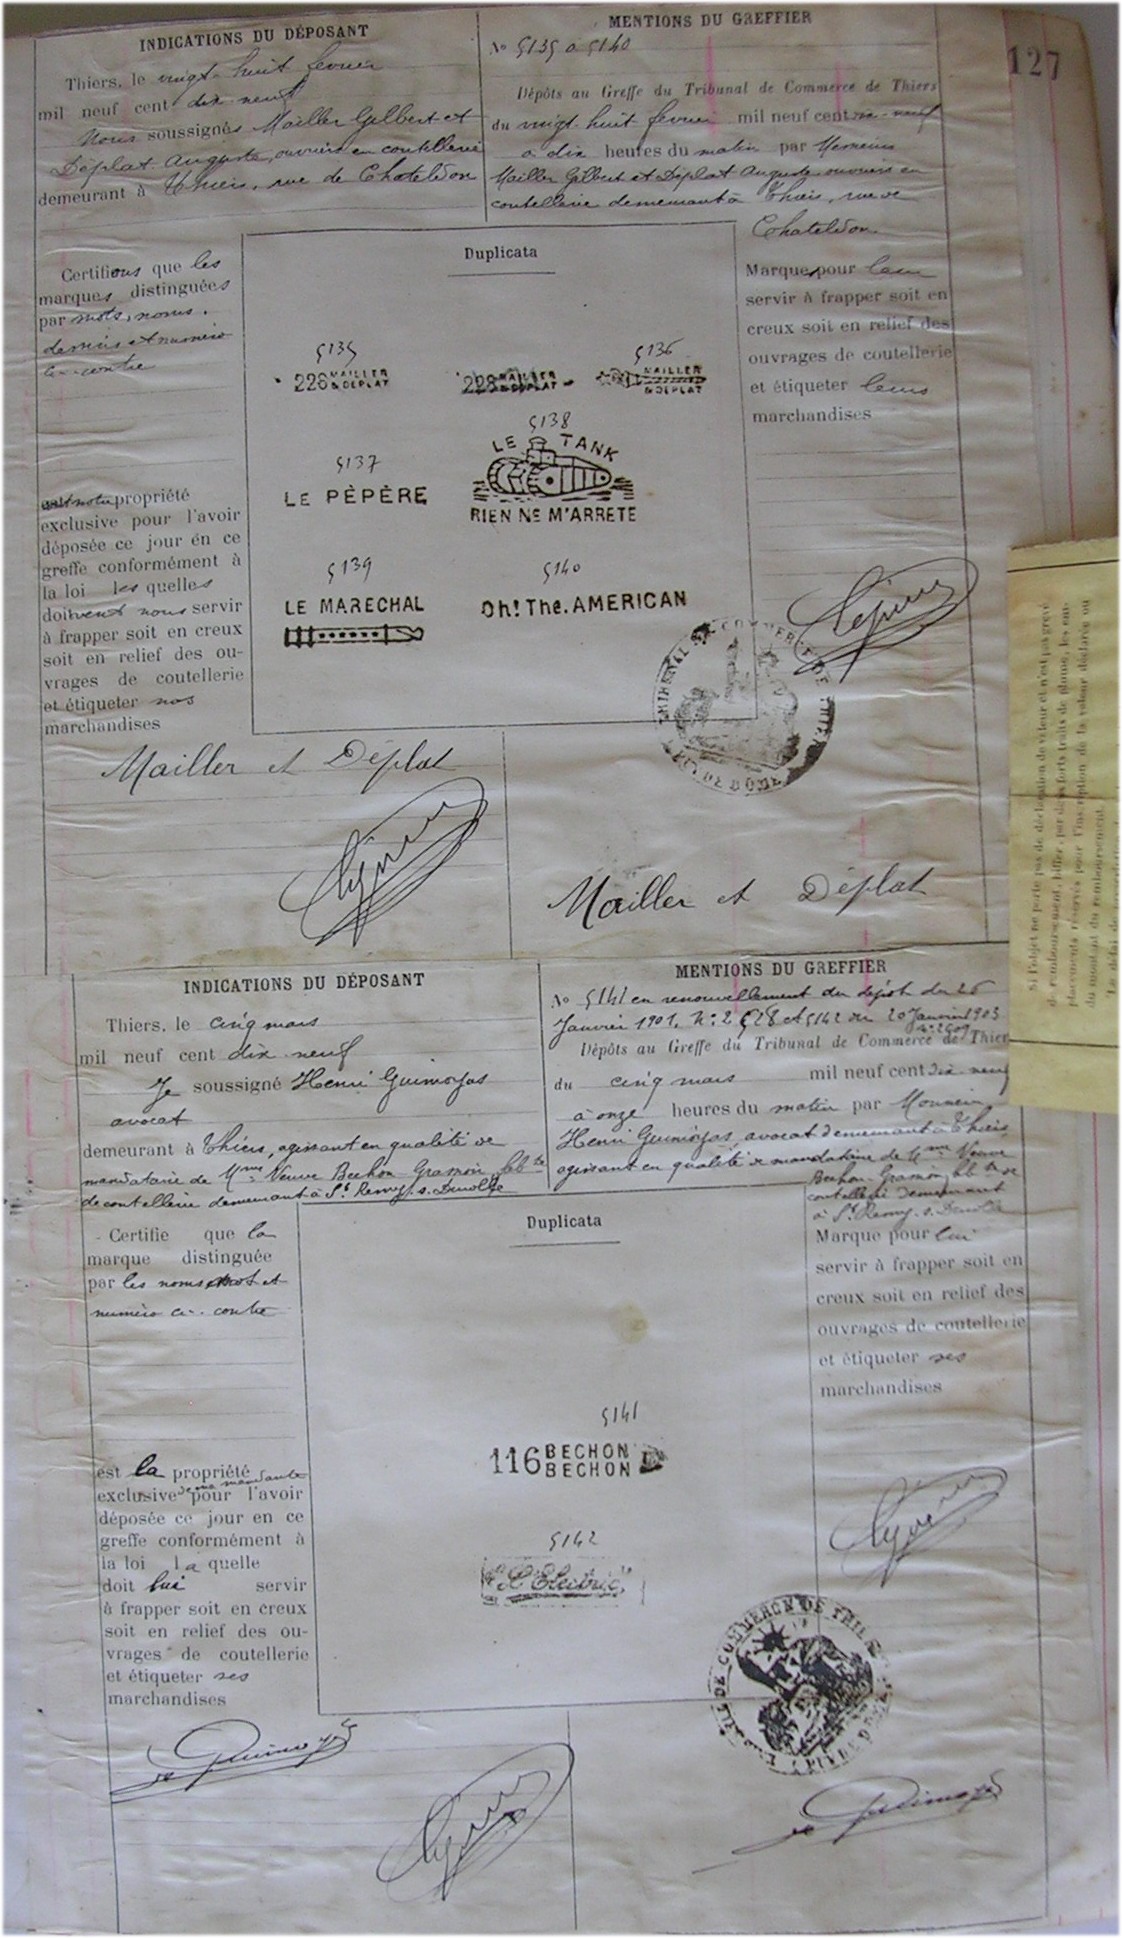 127
INDICATIONS DU DÉPOSANT
Thiers, le vingt-huit février
mil neuf cent dix neuf
Nous soussignés Mailler Gilbert et
Déplat Auguste, ouvriers en coutellerie
demeurant à Thiers, rue de Chateldon
MENTIONS DU GREFFIER
No 5135 à 5140
Dépôts au Greffe du Tribunal de Commerce de Thiers
du vingt-huit février mil neuf cent dix-neuf
à dix heures du matin par Messieurs
Mailler Gilbert et Déplat Auguste ouvriers en
coutellerie demeurant à Thiers, rue de
Chateldon
Certifions que les
marques distinguées
par mots, noms,
dessins et numéro
ci-contre
propriété
exclusive pour l'avoir
déposée ce jour en ce
greffe conformément à
la loi les quelles
doivent nous servir
à frapper soit en creux
soit en relief des ou-
vrages de coutellerie
et étiqueter nos
marchandises
Duplicata
5135
226 MAILLER
& DEPLAT
228 MAILLER
& DEPLAT
5136
MAILLER
& DEPLAT
5137
LE PÈPÈRE
5138
LE TANK
RIEN NE M'ARRETE
5139
LE MARECHAL
5140
Oh! The. AMERICAN
Marques pour leur
servir à frapper soit en
creux soit en relief des
ouvrages de coutellerie
et étiqueter leurs
marchandises
TRIBUNAL DE COMMERCE DE THIERS
PUY DE DOME
Mailler et Déplat
Mailler et Déplat
Si l'objet ne porte pas de déclaration de valeur et n'est pas grevé
de remboursement, biffer, par deux forts traits de plume, les em-
placements réservés pour l'inscription de la valeur déclarée ou
du montant du remboursement.
INDICATIONS DU DÉPOSANT
Thiers, le cinq mars
mil neuf cent dix neuf
Je soussigné Henri
avocat
demeurant à Thiers, agissant en qualité de
mandataire de Mme Veuve Bechon-Gramon fab te
de coutellerie demeurant à St Remy s.
MENTIONS DU GREFFIER
No 5141 en renouvellement du dépôt du 26
Janvier 1901. No 2528 et 5142 du 20 Janvier 1903
Dépôts au Greffe du Tribunal de Commerce de Thiers
du cinq mars mil neuf cent dix neuf
à onze heures du matin par Monsieur
Henri avocat demeurant à Thiers
agissant en qualité de mandataire de Mme Veuve
Bechon-Gramon fab te de
coutellerie demeurant
à St Remy s.
Certifie que la
marque distinguée
par les noms mot et
numéro ci-contre
est la propriété
de ma mandante
exclusive pour l'avoir
déposée ce jour en ce
greffe conformément à
la loi la quelle
doit lui servir
à frapper soit en creux
soit en relief des ou-
vrages de coutellerie
et étiqueter ses
marchandises
Duplicata
5141
116 BECHON
BECHON
5142
"L'Electric"
Marque pour lui
servir à frapper soit en
creux soit en relief des
ouvrages de coutellerie
et étiqueter ses
marchandises